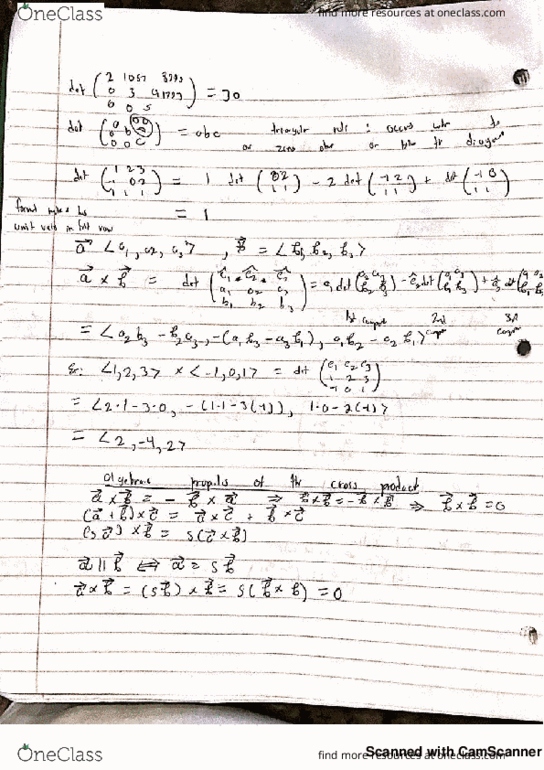 OneClass
find more resources at oneclass.com
det (2 1057 8793
0 3 41793
0 0 5) = 30
det (a 0 0
0 b 0
0 0 c) = abc triangular rule: occurs when
or zero above or below the diagonal
det (1 2 3
-1 0 2
1 1 1) = 1 det (0 2
1 1) - 2 det (-1 2
1 1) + det (-1 0
1 1)
= 1
unit vects in first row
a⃗ <a₁, a₂, a₃>, b⃗ = <b₁, b₂, b₃>
a⃗ × b⃗ = det (e₁ e₂ e₃
a₁ a₂ a₃
b₁ b₂ b₃) = a₁ det (a₂ a₃
b₂ b₃) - e₂ det (a₁ a₃
b₁ b₃) + e₃ det (a₁ a₂
b₁ b₂
1st compnt 2nd compnt 3rd compnt
= <a₂b₃ - b₂a₃, -(a₁b₃ - a₃b₁), a₁b₂ - a₂b₁>
Ex: <1,2,3> × <-1,0,1> = det (e₁ e₂ e₃
1 2 3
-1 0 1)
= <2·1-3·0, -(1·1-3(-1)), 1·0-2(-1)>
= <2,-4,2>
algebraic of the cross product
a⃗ × b⃗ = - b⃗ × a⃗ ⇒ b⃗ × b⃗ = - b⃗ × b⃗ ⇒ b⃗ × b⃗ = 0
(a⃗ + b⃗) × c⃗ = a⃗ × c⃗ + b⃗ × c⃗
(s a⃗) × b⃗ = s(a⃗ × b⃗)
a⃗ || b⃗ ⟺ a⃗ = s b⃗
a⃗ × b⃗ = (s b⃗) × b⃗ = s(b⃗ × b⃗) = 0
OneClass
find more resources at oneclass.com
Scanned with CamScanner